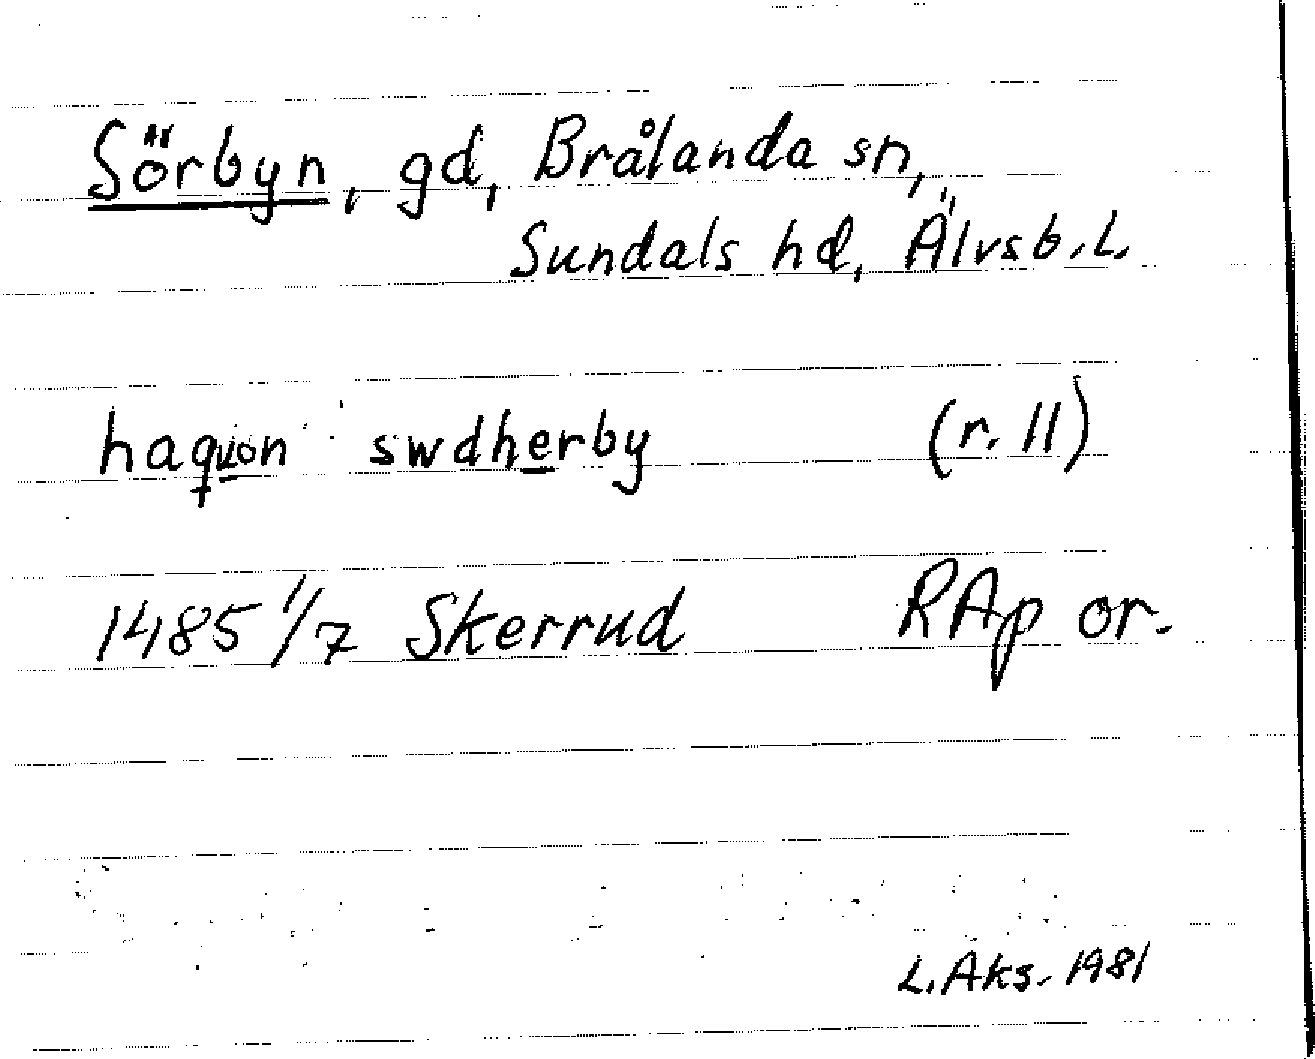 Sörbyn, gd, Brålanda sn,
Sundals hd, Älvsb. L.
haquon swdherby (r. 11)
1485 1/7 Skerrud RAp or.
L. Aks. 1981